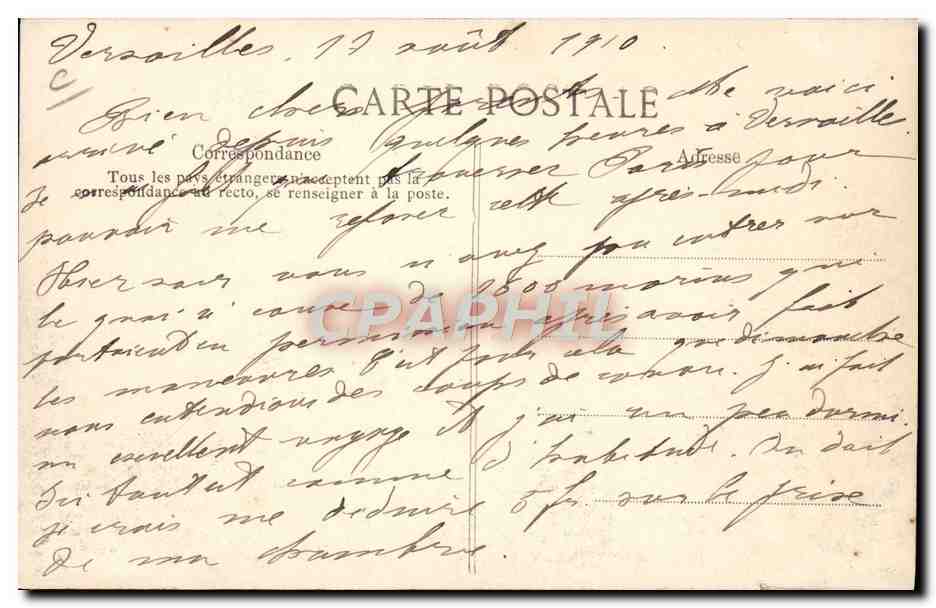 Versailles, 17 août 1910.
CARTE POSTALE
Bien chers parents Me voici
arrivé depuis quelques heures à Versailles.
Correspondance
Adresse
Tous les pays étrangers n'acceptent pas la
correspondance au recto, se renseigner à la poste.
Je traverser Paris pour
pouvoir me reposer cette après-midi.
Hier soir vous n'avez pu entrer sur
le quai à cause de 1800 marins qui
CPAPHIL
partaient en permission après avoir fait
les manœuvres C'est pour cela que dimanche
nous entendions des coups de canon. J'ai fait
un excellent voyage et j'ai un peu dormi.
tantôt comme d'habitude. On doit
je crois me déduire 5 fr. sur le prix
de ma chambre.